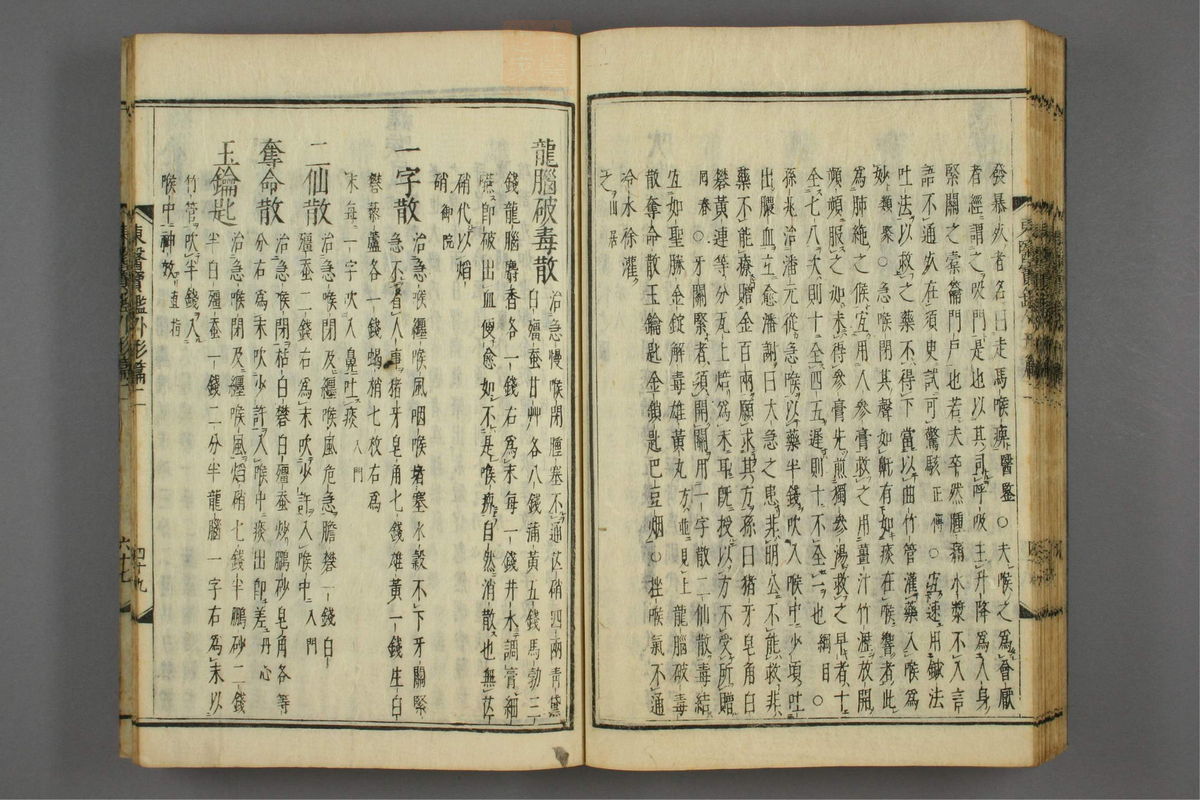 發暴死者名曰走馬喉痺醫鑑○夫喉之爲會厭
者經謂之吸門是也以其司呼吸主升降爲人身
緊關之橐籥門戶也若夫卒然腫痛水漿不入言
語不通死在須臾誠可驚駭正傳○宜速用鍼法
吐法以救之藥不得下當以曲竹管灌藥入喉爲
妙類聚○急喉閉其聲如鼾有如痰在喉響者此
爲肺絶之候宜用人參膏救之用薑汁竹瀝放開
頻頻服之如未得參膏先煎獨參湯救之早者十
全七八次則十全四五遲則十不全一也綱目○
孫兆治潘元從急喉以藥半錢吹入喉中少頃吐
出膿血立愈潘謝曰大急之患非明公不能救非
藥不能療贈金百兩願求其方孫曰猪牙皂角白
礬黃連等分瓦上焙爲末耳既授以方不受所贈
囘春○牙關緊者須開關用一字散二仙散毒結
宜如聖勝金錠解毒雄黃丸方並見上龍腦破毒
散奪命散玉鑰匙金鎖匙巴豆烟○挫喉氣不通
冷水徐灌
之山居
龍腦破毒散治急慢喉閉腫塞不通芒硝四兩青黛
白殭蚕甘艸各八錢蒲黃五錢馬勃三
錢龍腦麝香各一錢右爲末每一錢井水調膏細
嚥卽破出血便愈如不是喉痺自然消散也無芒
硝代以焔
硝御院
一字散治急喉纏喉風咽喉堵塞水穀不下牙關緊
急不省人事猪牙皂角七錢雄黃一錢生白
礬藜蘆各一錢蝎梢七枚右爲
末每一字吹入鼻吐痰入門
二仙散治急喉閉及纏喉風危急膽礬一錢白
殭蚕二錢右爲末吹少許入喉中入門
奪命散治急喉閉枯白礬白殭蚕炒鵬砂皂角各等
分右爲末吹少許入喉中痰出卽差丹心
玉鑰匙治急喉閉及纏喉風焔硝七錢半鵬砂二錢
半白殭蚕一錢二分半龍腦一字右爲末以
竹管吹半錢入
喉中神效直指
東醫寶鑑外形篇二
四十九